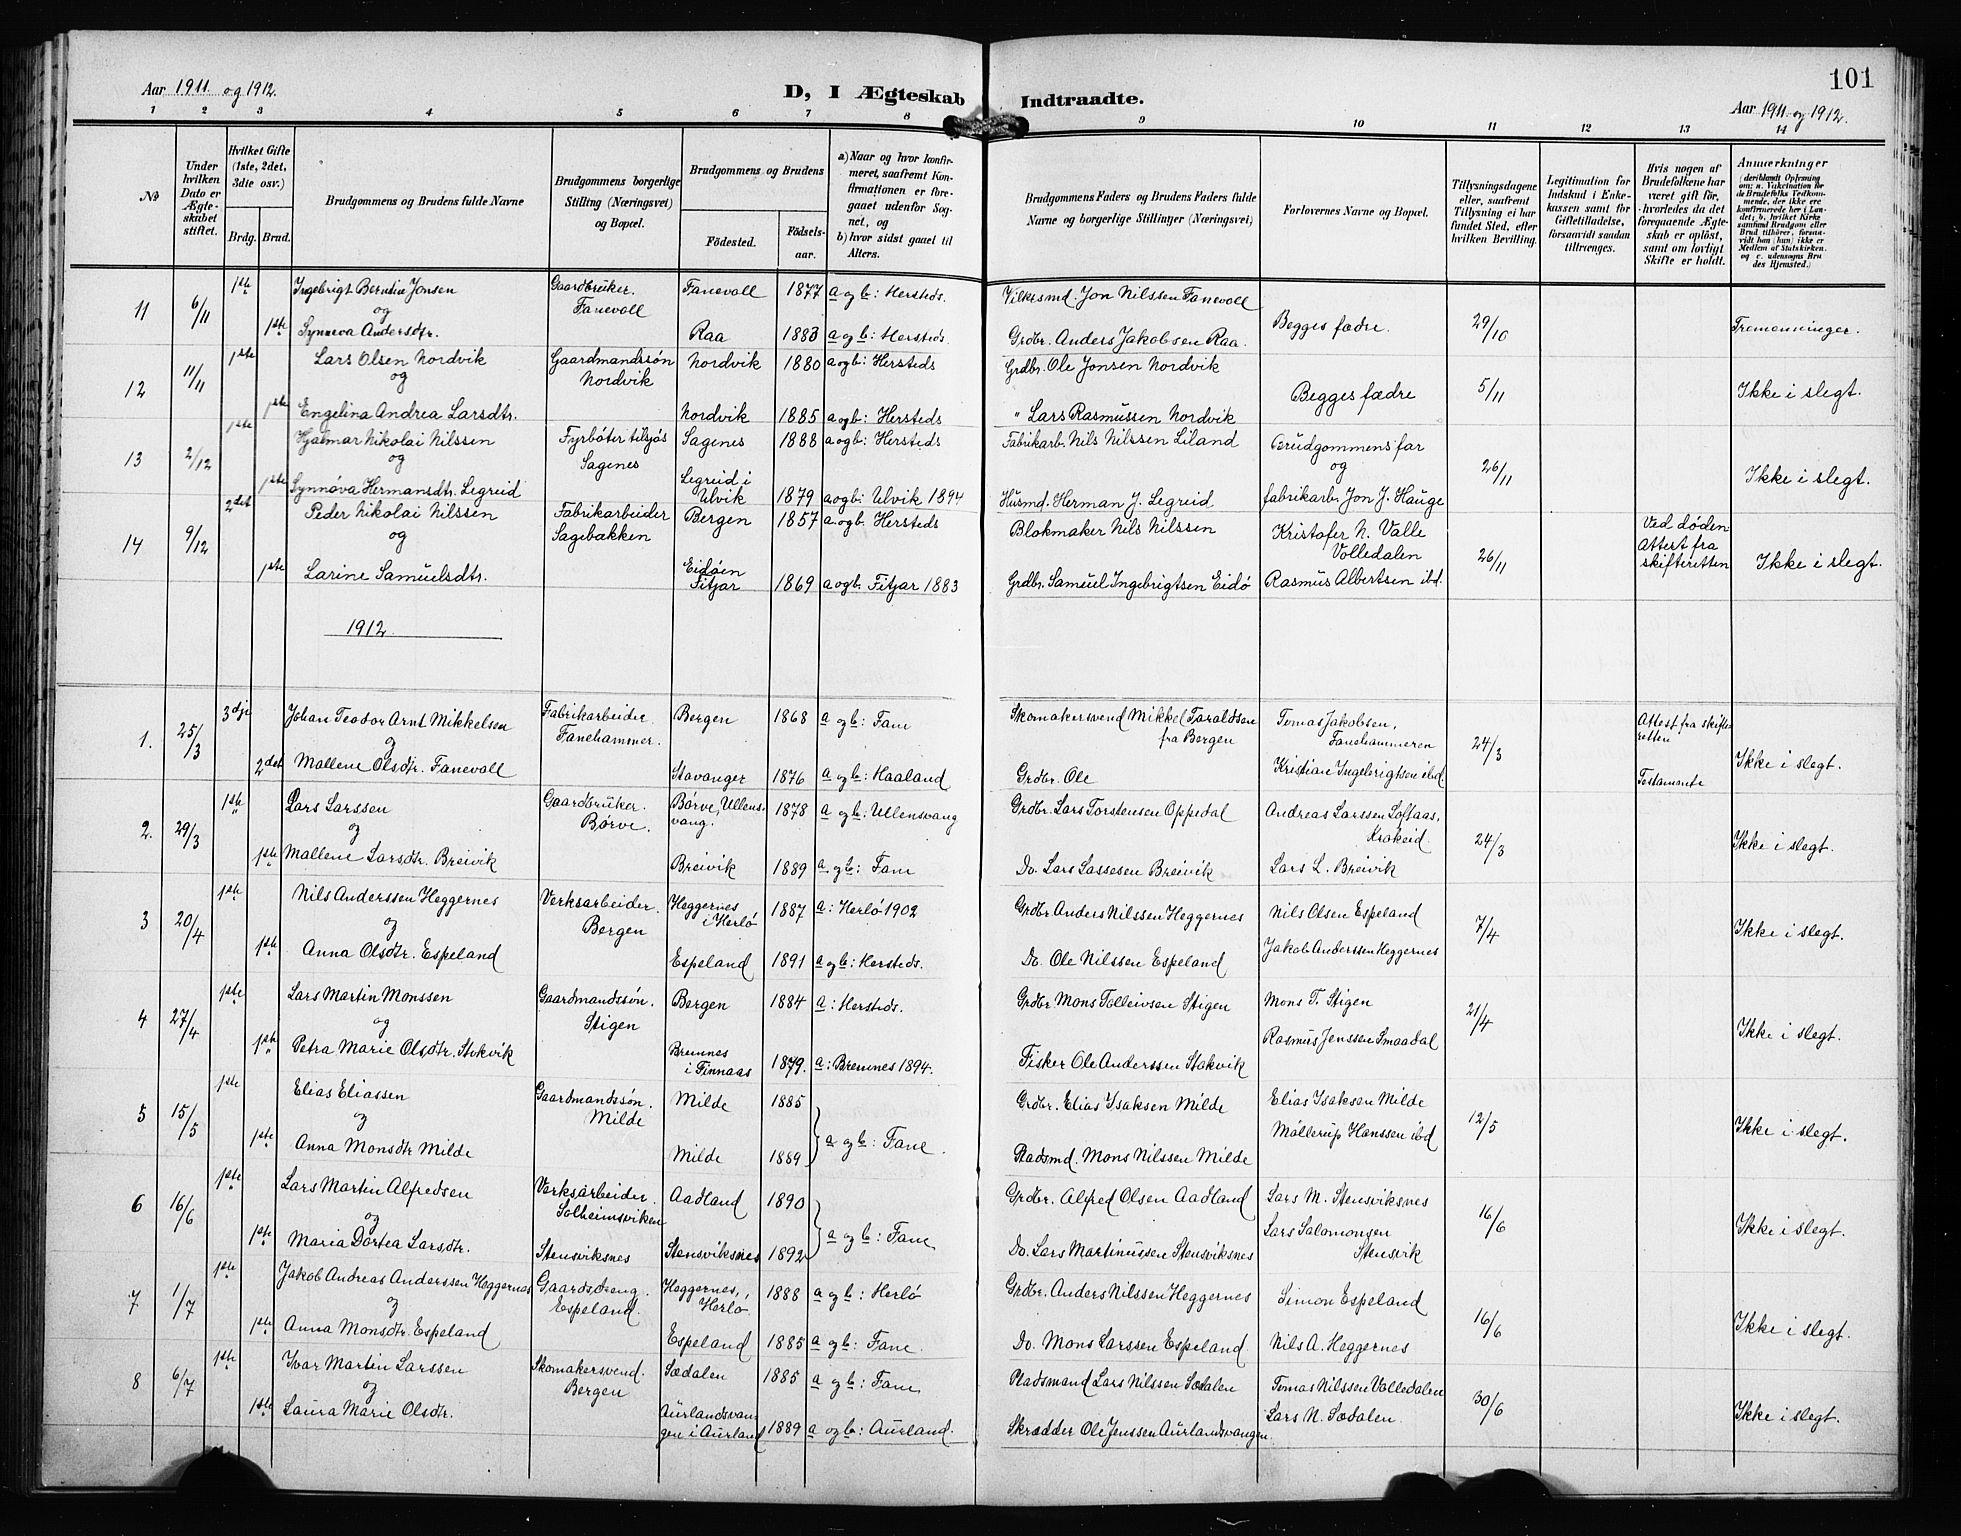 101
Aar 1911. og 1912.
D, I Ægteskab Indtraadte.
Aar 1911. og 1912.
1 2 3 4 5 6 7 8 9 10 11 12 13 14
No
Under hvilken Dato er Ægteskabet stiftet.
Hvilket Gifte (1ste, 2det, 3die osv.)
Brdg. Brud.
Brudgommens og Brudens fulde Navne
Brudgommens borgerlige Stilling (Næringsvei) og Bopæl.
Brudgommens og Brudens
Fødested. Fødselsaar.
a) Naar og hvor konfirmeret, saafremt Konfirmationen er foregaaet udenfor Sognet, og
b) hvor sidst gaael til Alters.
Brudgommens Faders og Brudens Faders fulde Navne og borgerlige Stillinger (Næringsvei)
Forlovernes Navne og Bopæl.
Tillysningsdagene eller, saafremt Tillysning ei har fundet Sted, efter hvilken Bevilling.
Legitimation for Indskud i Enkekassen samt for Giftetilladelse, forsaavidt saadan tiltrænges.
Hvis nogen af Brudefolkene har været gift før, hvorledes da det foregaaende Ægteskab er opløst, samt om lovligt Skifte er holdt.
Anmærkninger
(deriblandt Oplysning om: a. Vakcination for de Brudefolks Vedkommende, der ikke ere konfirmerede her i Landet; b. hvilket Kirkesamfund Brudgom eller Brud tilhører, forsaavidt han (hun) ikke er Medlem af Statskirken, og c. udensogns Brudes Hjemsted.)
11 6/11 1ste Ingebrigt Berntin Jonsen Gaardbruker. Fanevoll Fanevoll 1877 a og b: Hersteds. Jon Nilssen Fanevoll Begges fædre. 29/10 Tremenninger.
og
1ste Synneva Andersdtr. Raa 1883 a og b: Hersteds. Grdbr. Anders Jakobsen Raa.
12 11/11 1ste Lars Olsen Nordvik Gaardmandssøn Nordvik Nordvik 1880 a og b: Hersteds Grdbr. Ole Jonsen Nordvik Begges fædre 5/11 Ikke i slegt.
og
1ste Engelina Andrea Larsdtr. Nordvik 1885 a og b: Hersteds " Lars Rasmussen Nordvik
13 2/12 1ste Hjalmar Nikolai Nilssen Fyrbøter tilsjøs Sagenes Sagenes 1888 a og b: Hersteds Fabrikarb. Nils Nilssen Liland Brudgommens far 26/11 Ikke i slegt.
og og
1ste Synnøva Hermansdtr. Legreid Legreid i Ulvik 1879 a og b: Ulvik 1894 Husmd. Herman J. Legreid fabrikarb. Jon J. Hauge
14 9/12 2det Peder Nikolai Nilssen Fabrikarbeider Sagebakken Bergen 1857 a. og b: Hersteds Blokmaker Nils Nilssen Kristofer N. Valle Volledalen 26/11 Ved døden Attest fra skifteretten Ikke i slegt.
og
1ste Larine Samuelsdtr. Eidøen Fitjar 1869 a og b. Fitjar 1883 Grdbr. Samuel Ingebrigtsen Eidø Rasmus Albertsen ibd.
1912.
1. 25/3 3dje Johan Teodor Arnt Mikkelsen Fabrikarbeider. Fanehammer. Bergen 1868 a og b: Fane Skomakersvend Mikkel Taraldsen fra Bergen Tomas Jakobsen, Fanehammeren 24/3 Attest fra skifteretten Ikke i slegt.
og
2det Mallene Olsdtr. Fanevoll Stavanger 1876 a og b: Haaland Grdbr. Ole Kristian Ingebrigtsen ibd. Testamente
2. 29/3 1ste Lars Larssen Gaardbruker. Børve. Børve, Ullensvang. 1878 a og b: Ullensvang Grdbr. Lars Torstensen Oppedal Andreas Larssen Loftaas, Krokeid. 24/3 Ikke i slegt.
og
1ste Mallene Larsdtr. Breivik Breivik 1889 a og b: Fane Do. Lars Lassesen Breivik Lars L. Breivik
3 20/4 1ste Nils Anderssen Heggernes Verksarbeider. Bergen Heggernes i Herlø 1887 a: Herlö 1902 Grdbr Anders Nilssen Heggernes Nils Olsen Espeland 7/4 Ikke i slegt.
og
1ste Anna Olsdtr. Espeland Espeland 1891 a og b: Hersteds. Do. Ole Nilssen Espeland Jakob Anderssen Heggernes
4 27/4 1ste Lars Martin Monssen Gaardmandssøn. Stigen Bergen 1884 a: Hersteds. Grdbr Mons Tolleivsen Stigen Mons T. Stigen 21/4 Ikke i slegt.
og
1ste Petra Marie Olsdtr. Stokvik Bremnes i Finnaas 1879. a: Bremnes 1894. Fisker Ole Anderssen Stokvik Rasmus Jenssen Smaadal
5 15/5 1ste Elias Eliassen Gaardmandssøn. Milde Milde 1885 a og b: Fane Grdbr. Elias Isaksen Milde Elias Isaksen Milde 12/5 Ikke i slegt.
og
1ste Anna Monsdtr Milde Milde 1889 Pladsmd. Mons Nilssen Milde Møllerup Hanssen ibd
6 16/6 1ste Lars Martin Alfredsen Verksarbeider. Solheimsviken Aadland 1890 a og b: Fane Grdbr. Alfred Olsen Aadland Lars M. Stensviksnes 16/6 Ikke i slegt.
og
1ste Maria Dortea Larsdtr. Stensviksnes Stensviksnes 1892 Do. Lars Martinussen Stensviksnes Lars Salomonsen Stensvik
7 1/7 1ste Jakob Andreas Anderssen Heggernes Gaardsdreng. Espeland. Heggernes, Herlø 1888 a og b: Herlö Grdbr. Anders Nilssen Heggernes Simon Espeland 16/6 Ikke i slegt.
og
1ste Anna Monsdtr. Espeland Espeland 1885 a og b: Fane. Do. Mons Larssen Espeland. Nils A. Heggernes
8 6/7 1ste Ivar Martin Larssen Skomakersvend. Bergen Sædalen 1885 a og b: Fane Pladsmand Lars Nilssen Sædalen Tomas Nilssen Volledalen 30/6 Ikke i slegt.
og
1ste Laura Marie Olsdtr. Aurlandsvangen i Aurland 1889 a og b: Aurland. Skrædder Ole Jenssen Aurlandsvangen. Lars N. Sædalen.